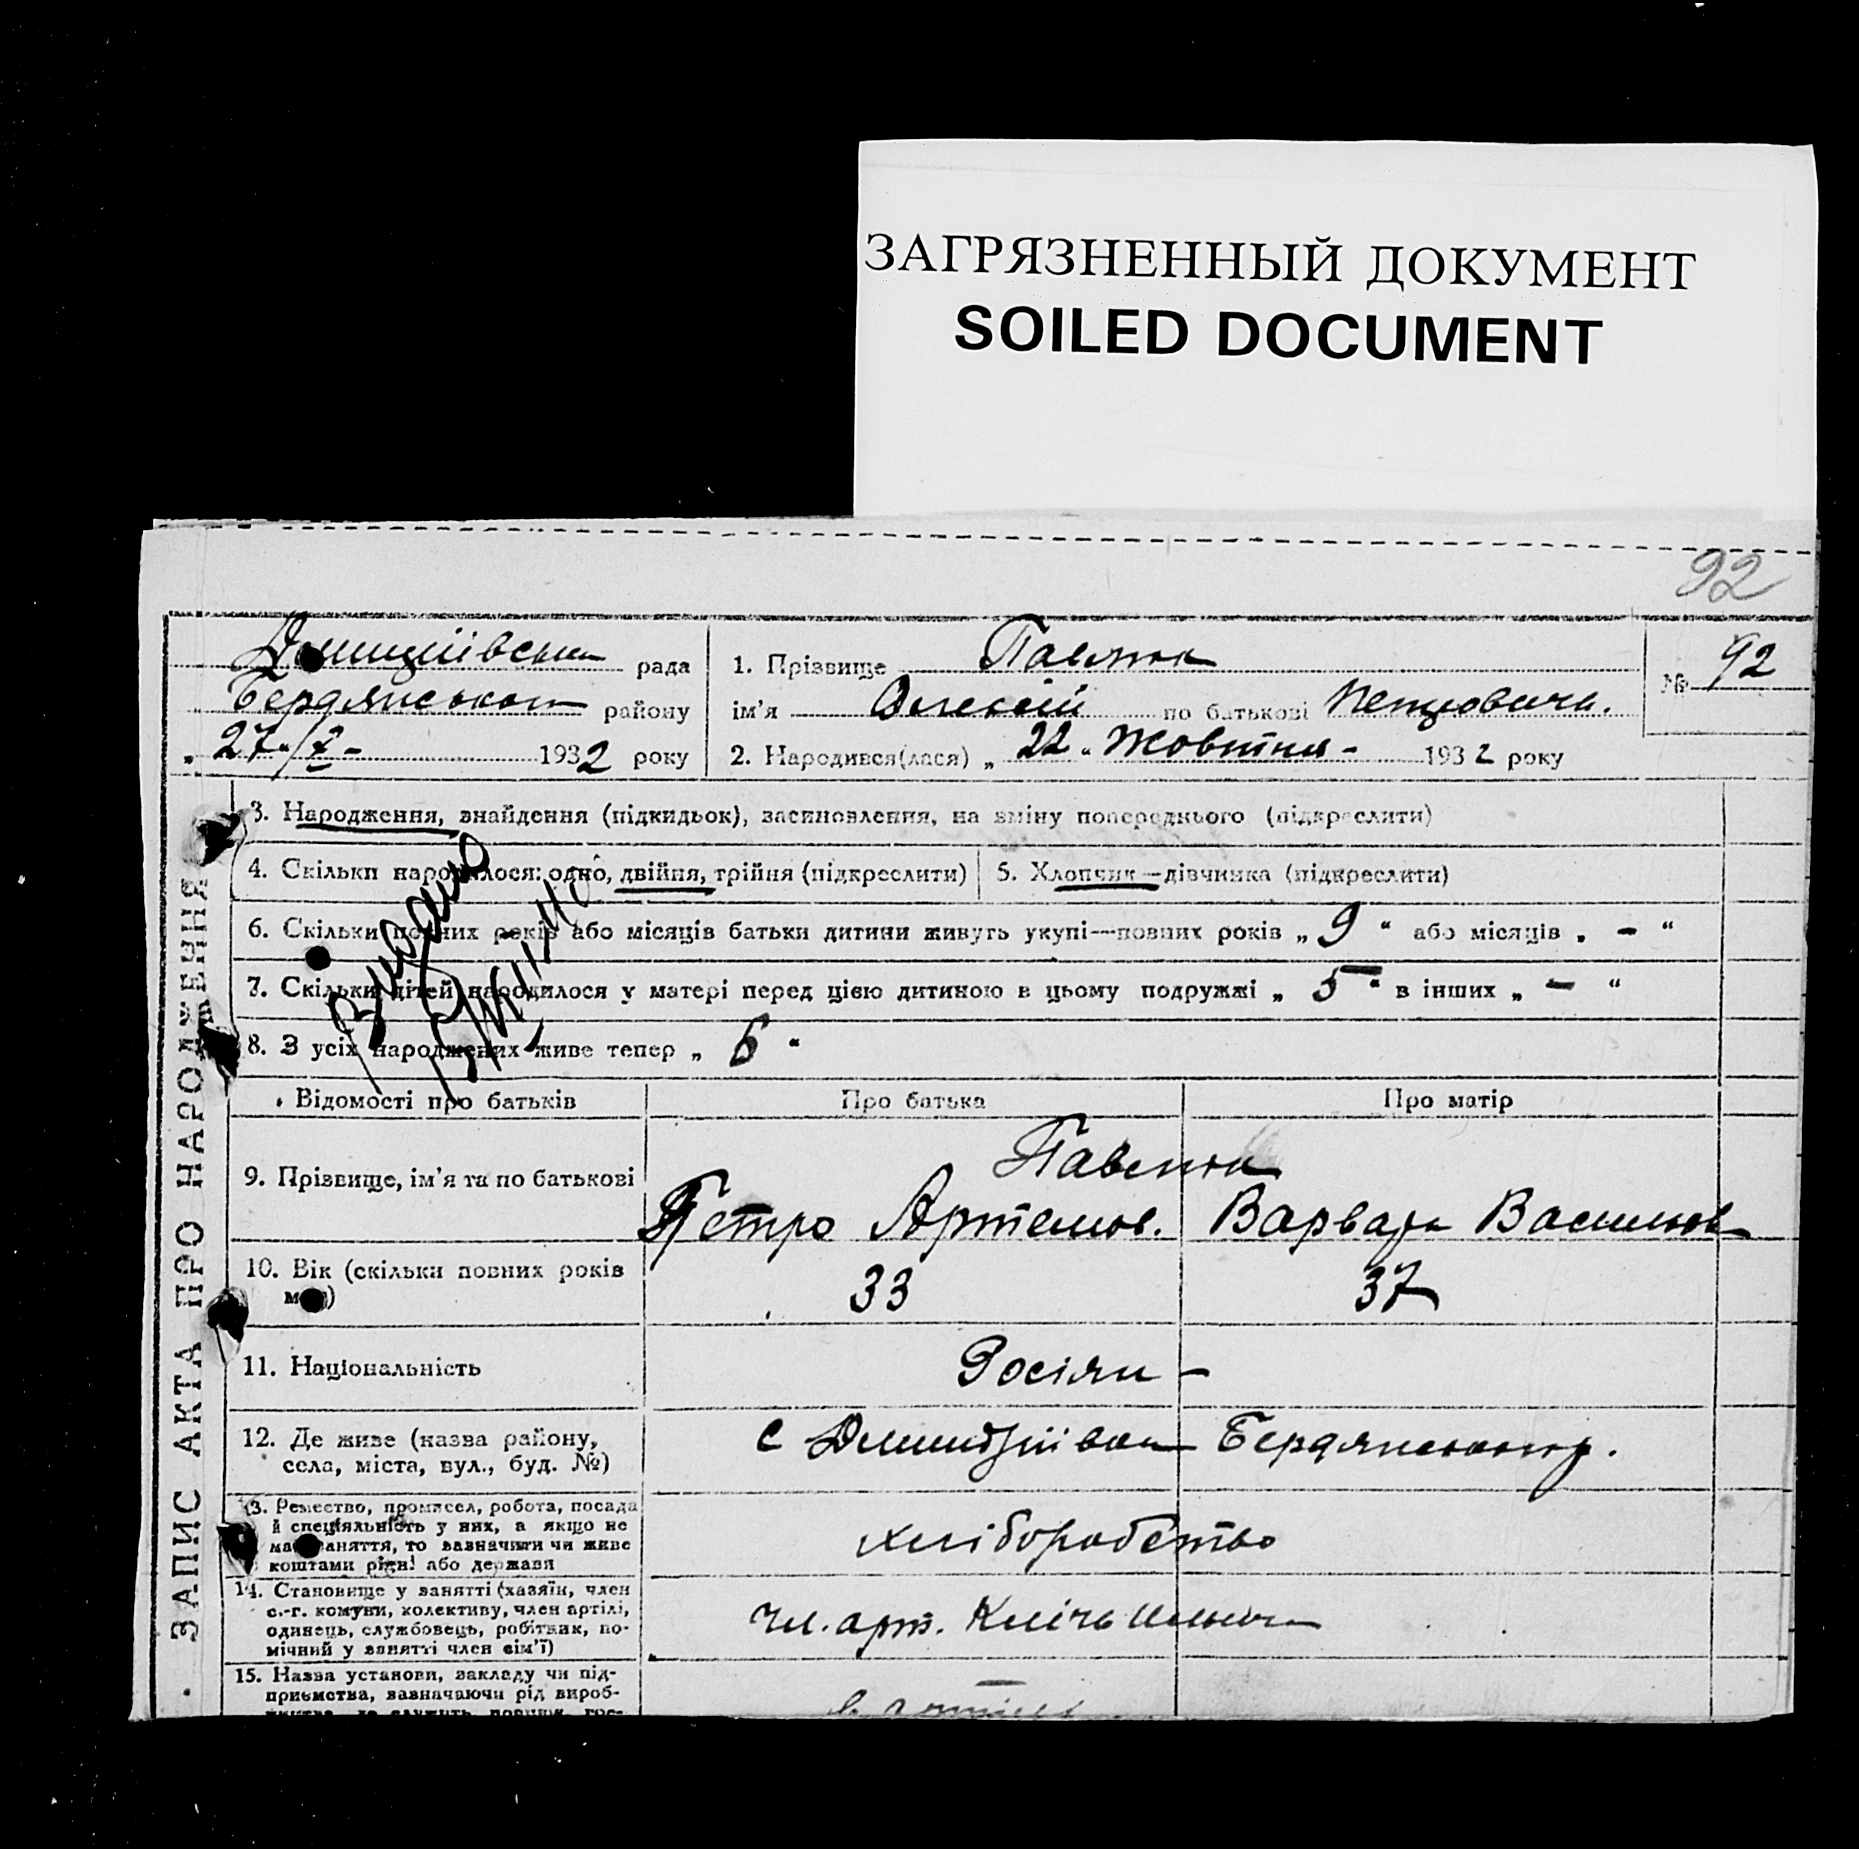 ЗАГРЯЗНЕННЫЙ ДОКУМЕНТ
SOILED DOCUMENT
92
рада
Бердянського району
„ 27 " / X - 1932 року
1. Прізвище Павлюк
ім'я Олексій по батькові Петрович.
2. Народився(лася) „ 22 " Жовтня - 1932 року
№ 92
ЗАПИС АКТА ПРО НАРОДЖЕННЯ
3. Народження, знайдення (підкидьок), засиновлення, на зміну попереднього (підкреслити)
4. Скільки народилося: одно, двійня, трійня (підкреслити)
5. Хлопчик—дівчинка (підкреслити)
6. Скільки повних років або місяців батьки дитини живуть укупі—повних років „ 9 " або місяців „ - "
7. Скільки дітей народилося у матері перед цією дитиною в цьому подружжі „ 5 " в інших „ - "
8. З усіх народжених живе тепер „ 6 "
Видано
Відомості про батьків
Про батька
Про матір
9. Прізвище, ім'я та по батькові
Павлюк
Петро Артемов.
Варвара Васильов
10. Вік (скільки повних років
має)
33
37
11. Національність
Росіяни -
12. Де живе (назва району,
села, міста, вул., буд. №)
с Бердянського р.
13. Ремество, промисел, робота, посада
й спеціяльність у них, а якщо не
має заняття, то зазначити чи живе
коштами рідні або держави
хліборобство
14. Становище у занятті (хазяїн, член
с.-г. комуни, колективу, член артілі,
одинець, службовець, робітник, по-
мічний у занятті член сім'ї)
чл. арт. Кличь Ильича
15. Назва установи, закладу чи під-
приємства, зазначаючи рід вироб-